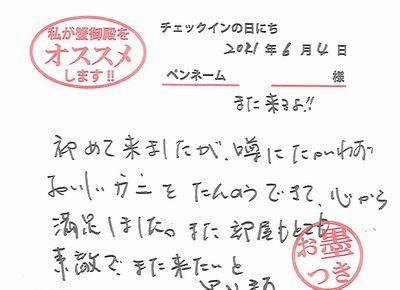 私が蟹御殿を
オススメ
します!!
チェックインの日にち
2021年6月4日
ペンネーム 様
また来るよ!!
初めて来ましたが、噂にたがわず
おいしいカニをたんのうできて、心から
満足しました。また部屋もとても
素敵で、また来たいと
思います
お墨
つき